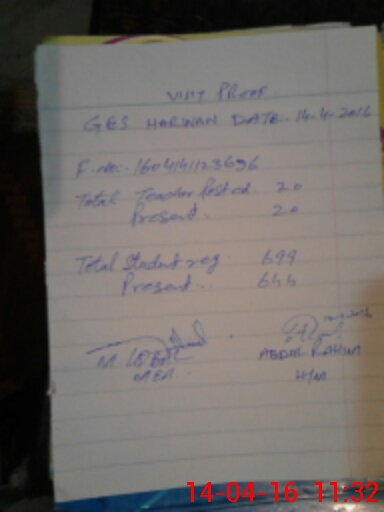 VISIT PROOF
GES HARWAN DATE:- 14-4-2016
F-no:- 1604141123696
Total Teacher Posted. 20
Present. 20
Total Student reg 699
Present... 644
M. IQBAL
MEA
ABDUR RAHIM
H/M
14-04-16 11:32